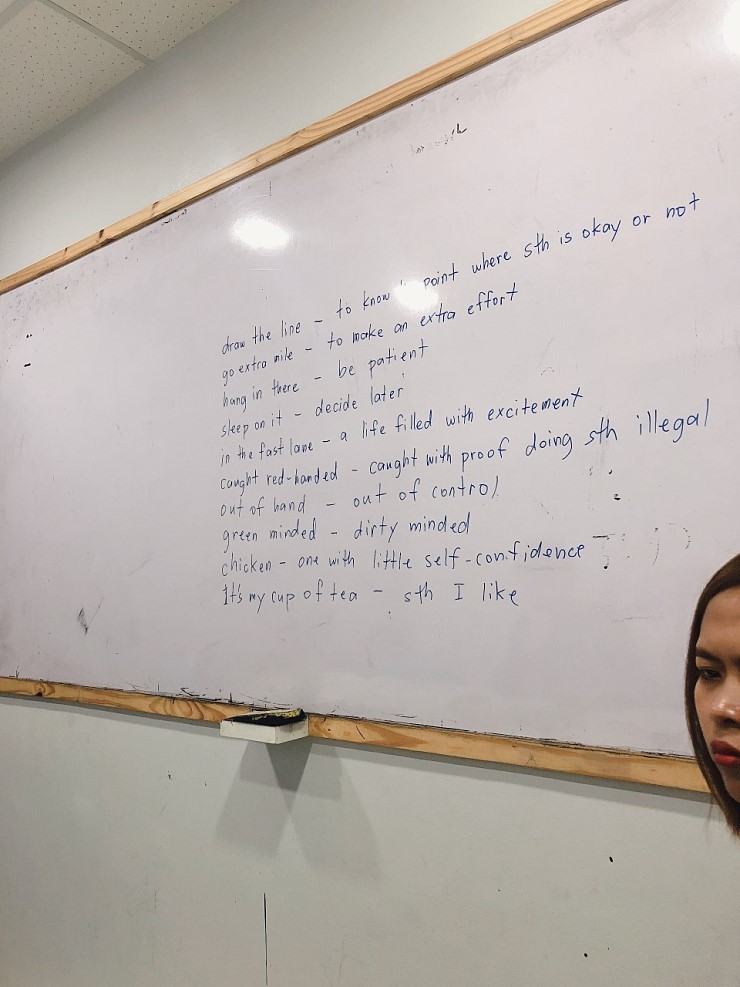 draw the line - to know point where sth is okay or not
go extra mile - to make an extra effort
hang in there - be patient
sleep on it - decide later
in the fast lane - a life filled with excitement
caught red-handed - caught with proof doing sth illegal
out of hand - out of control
green minded - dirty minded
chicken - one with little self-confidence
It's my cup of tea - sth I like